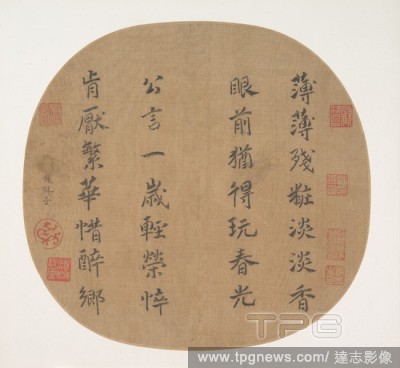 薄薄殘粧淡淡香
眼前猶得玩春光
公言一歲輕榮悴
肯厭繁華惜醉鄉
TPG
www.tpgnews.com/ 達志影像